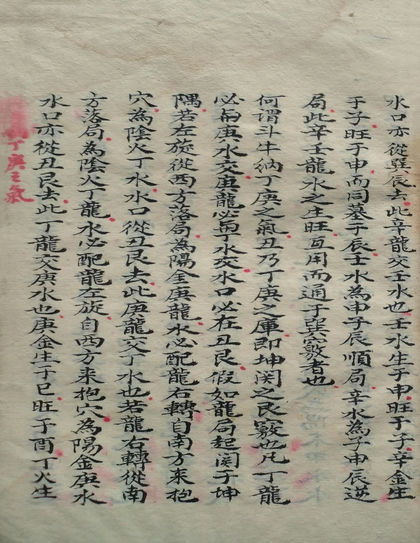 水口亦從巽辰去此辛龍交壬水也壬水生于申旺于子辛金生
于子旺于申而同墓于辰壬水為申子辰順局辛水為子申辰逆
局此辛壬龍水之生旺互用而通于巽竅者也
何謂斗牛納丁庚之氣丑乃丁庚之庫即坤関之艮竅也凡丁龍
必喬庚水交庚龍必喬丁水交水口必在丑艮假如龍局起関于坤
隅若左旋從西方落局為陽金庚龍水必配龍右轉自南方來抱
穴為陰火丁水水口從丑艮去此庚龍交丁水也若龍右轉從南
方落局為陰火丁龍水必配龍左旋自西方來抱穴為陽金庚水
水口亦從丑艮去此丁龍交庚水也庚金生于巳旺于酉丁火生
丁庚之氣